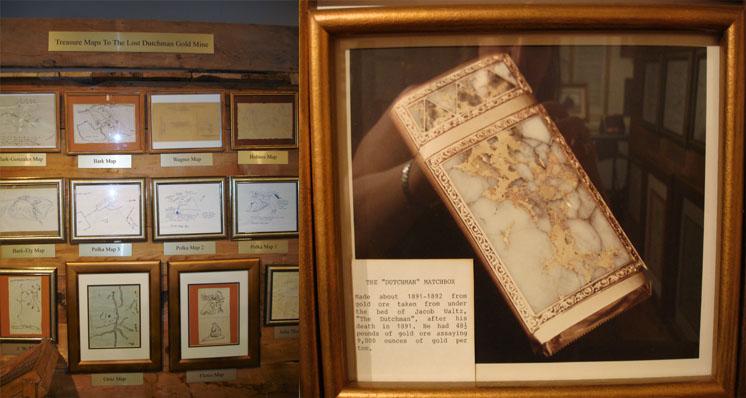 Treasure Maps To The Lost Dutchman Gold Mine
Bark-Gonzales Map
Bark Map
Wagner Map
Holmes Map
Bark-Ely Map
Polka Map 3
Polka Map 2
Polka Map 1
Map
Map
THE "DUTCHMAN" MATCHBOX
Made about 1891-1892 from
gold ore taken from under
the bed of Jacob Waltz,
"The Dutchman", after his
death in 1891. He had 48½
pounds of gold ore assaying
ounces of gold per
ton.